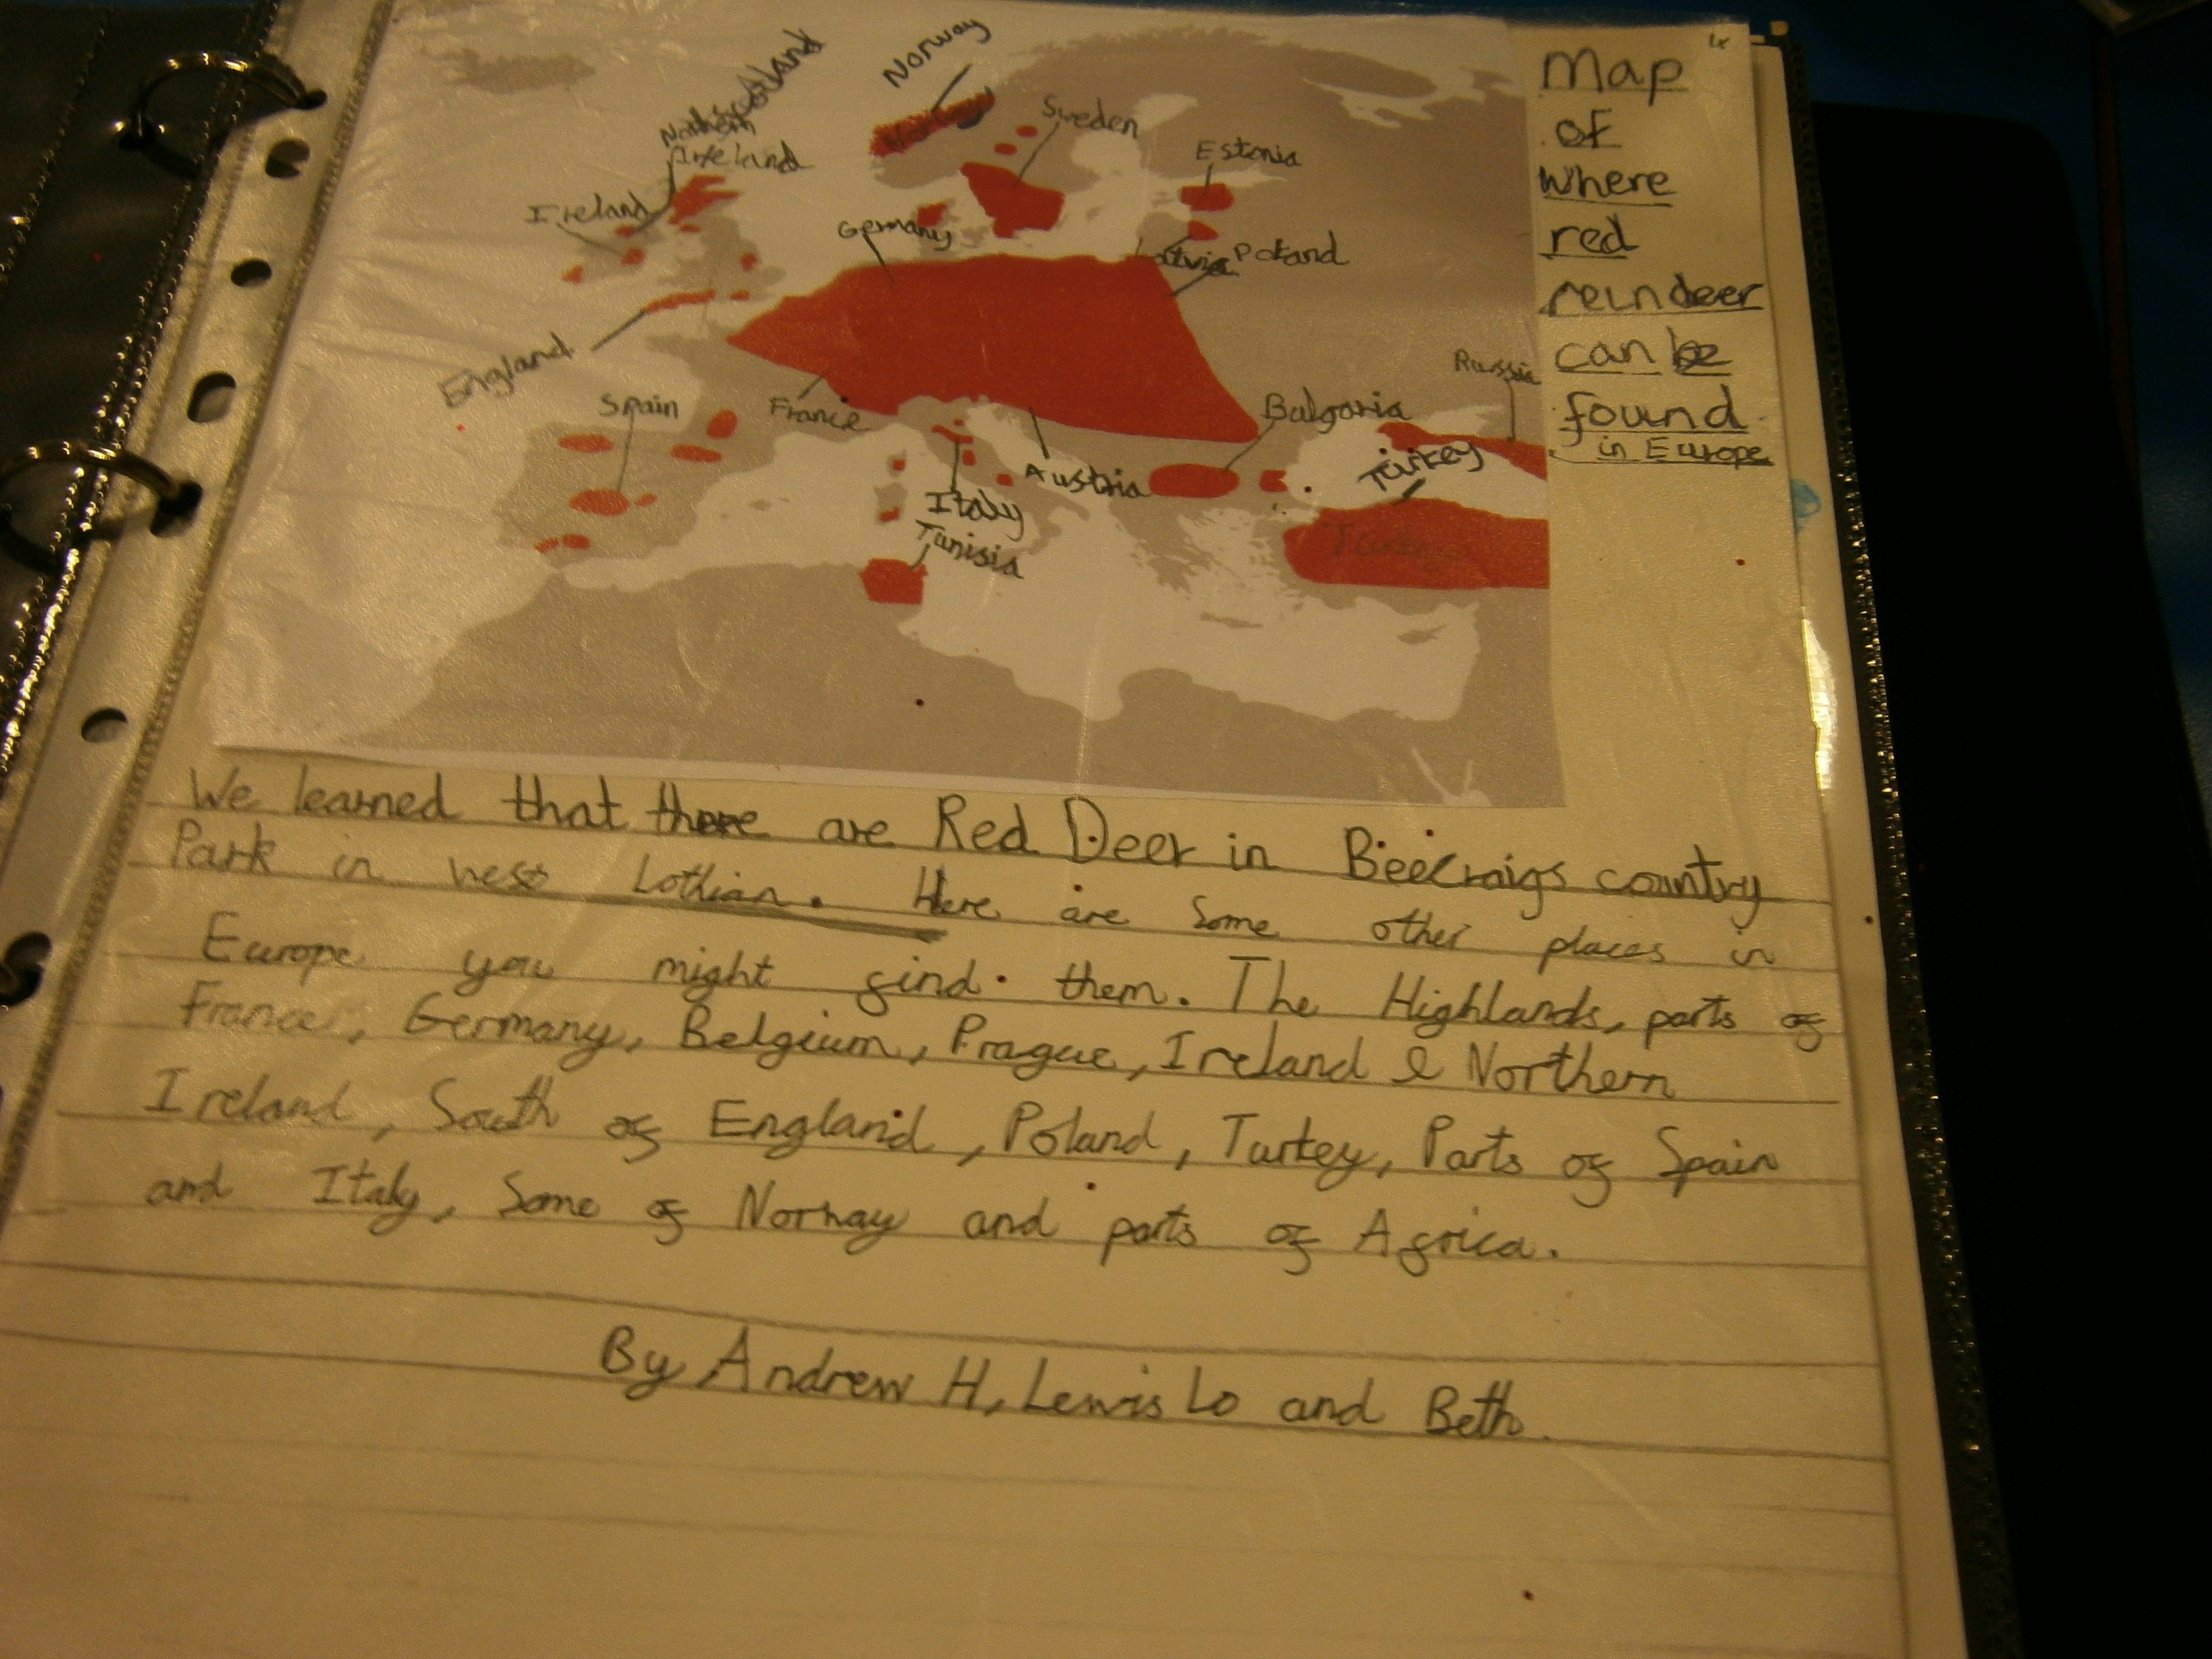 Norway
Sweden
Estonia
Northern
Ireland
Ireland
Germany
Latvia
Poland
England
Spain
France
Russia
Bulgaria
Turkey
Austria
Italy
Tunisia
Map
of
where
red
reindeer
can be
found
in Europe
We learned that there are Red Deer in Beecraigs country
Park in west Lothian. Here are some other places in
Europe you might find them. The Highlands, parts of
France, Germany, Belgium, Prague, Ireland & Northern
Ireland, South of England, Poland, Turkey, Parts of Spain
and Italy, Some of Norway and parts of Africa.
By Andrew H, Lewis Lo and Beth.